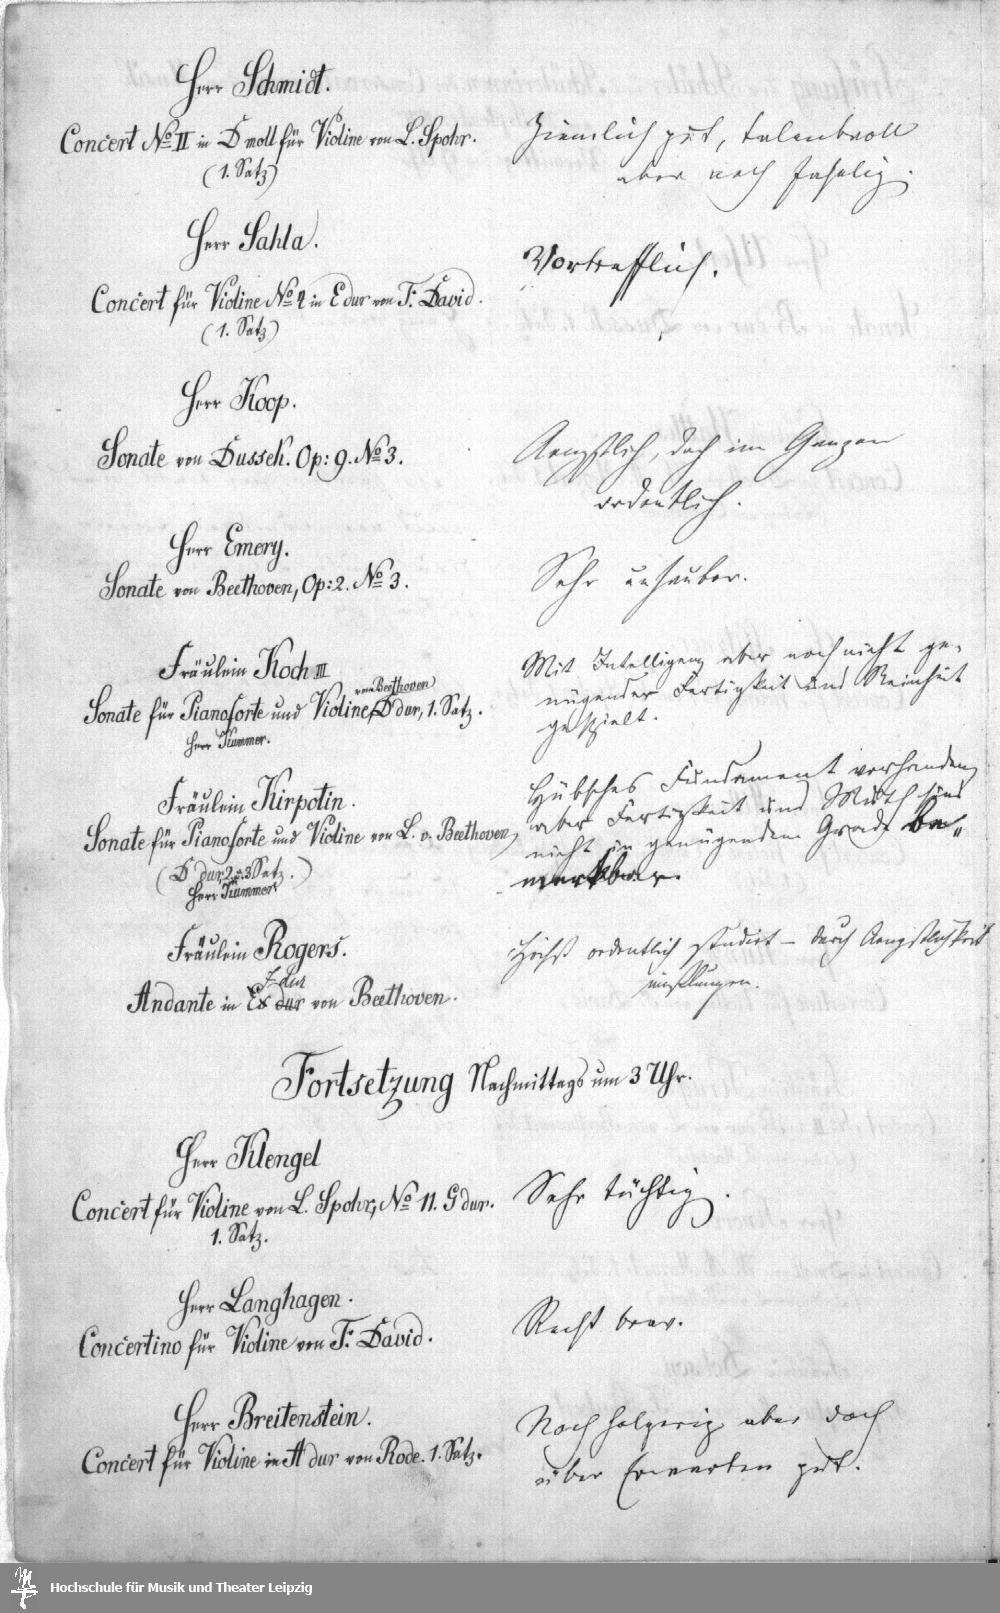 Herr Schmidt.
Concert No II in D moll für Violine von L. Spohr.
(1. Satz)
Ziemlich gut, talentvoll
aber noch faselig.
Herr Sahla.
Concert für Violine No 4 in E dur von F. David.
(1. Satz)
Vortrefflich.
Herr Koop.
Sonate von Dussek. Op: 9. No 3.
Aengstlich, doch im Ganzen
ordentlich.
Herr Emery.
Sonate von Beethoven, Op: 2. No 3.
Sehr unsauber.
Fräulein Koch III
von Beethoven
Sonate für Pianoforte und Violine, D dur, 1. Satz.
Herr Kummer.
Mit Intelligenz aber noch nicht ge-
nügender Fertigkeit und Reinheit
gespielt.
Fräulein Kirpotin.
Sonate für Pianoforte und Violine von L. v. Beethoven,
(D dur, 2. u. 3. Satz.)
Herr Kummer
Hübsches Fundament vorhanden,
aber Fertigkeit und Muth sind
nicht in genügendem Grade be„
merkbar.
Fräulein Rogers.
F dur
Andante in Es dur von Beethoven.
Höchst ordentlich studirt – durch Aengstlichkeit
misslungen.
Fortsetzung Nachmittags um 3 Uhr.
Herr Klengel
Concert für Violine von L. Spohr, No 11. G dur.
1. Satz.
Sehr tüchtig.
Herr Langhagen.
Concertino für Violine von F. David.
Recht brav.
Herr Breitenstein.
Concert für Violine in A dur von Rode. 1. Satz.
Noch holperig aber doch
über Erwarten gut.
Hochschule für Musik und Theater Leipzig